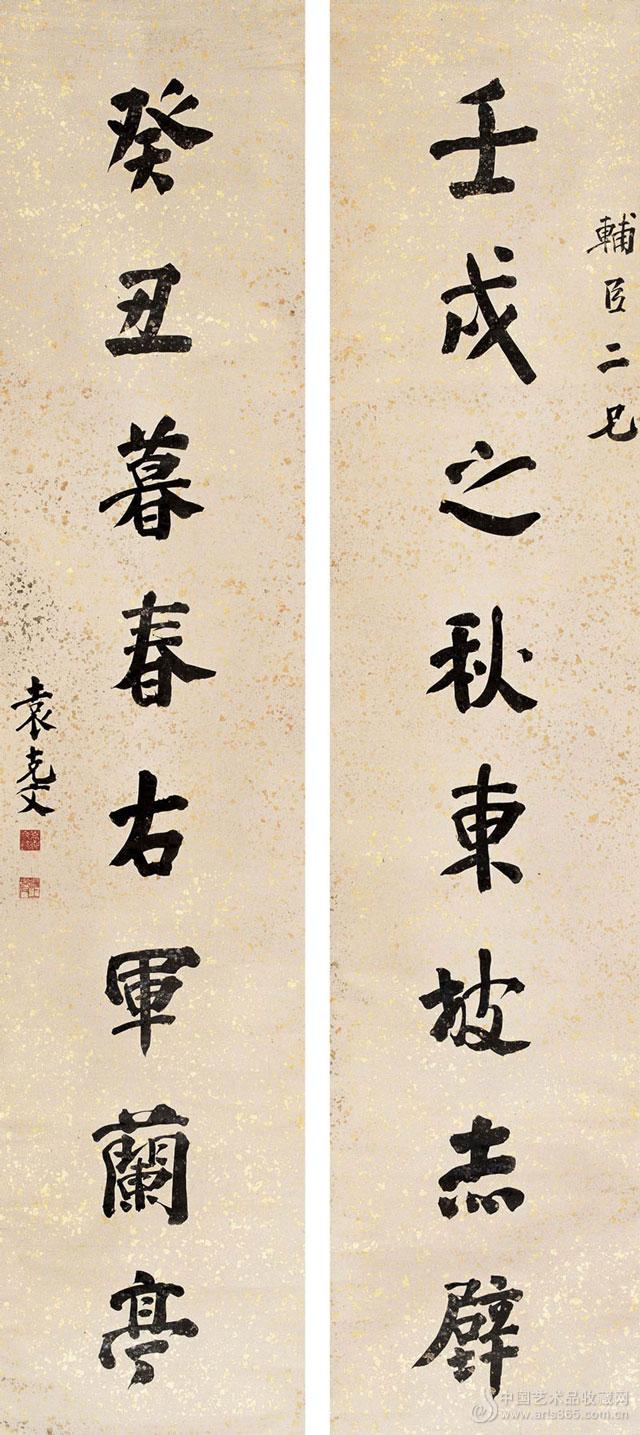 輔臣二兄
壬戌之秋東坡赤壁
癸丑暮春右軍蘭亭
袁克文
中国艺术品收藏网
www.arts365.com.cn